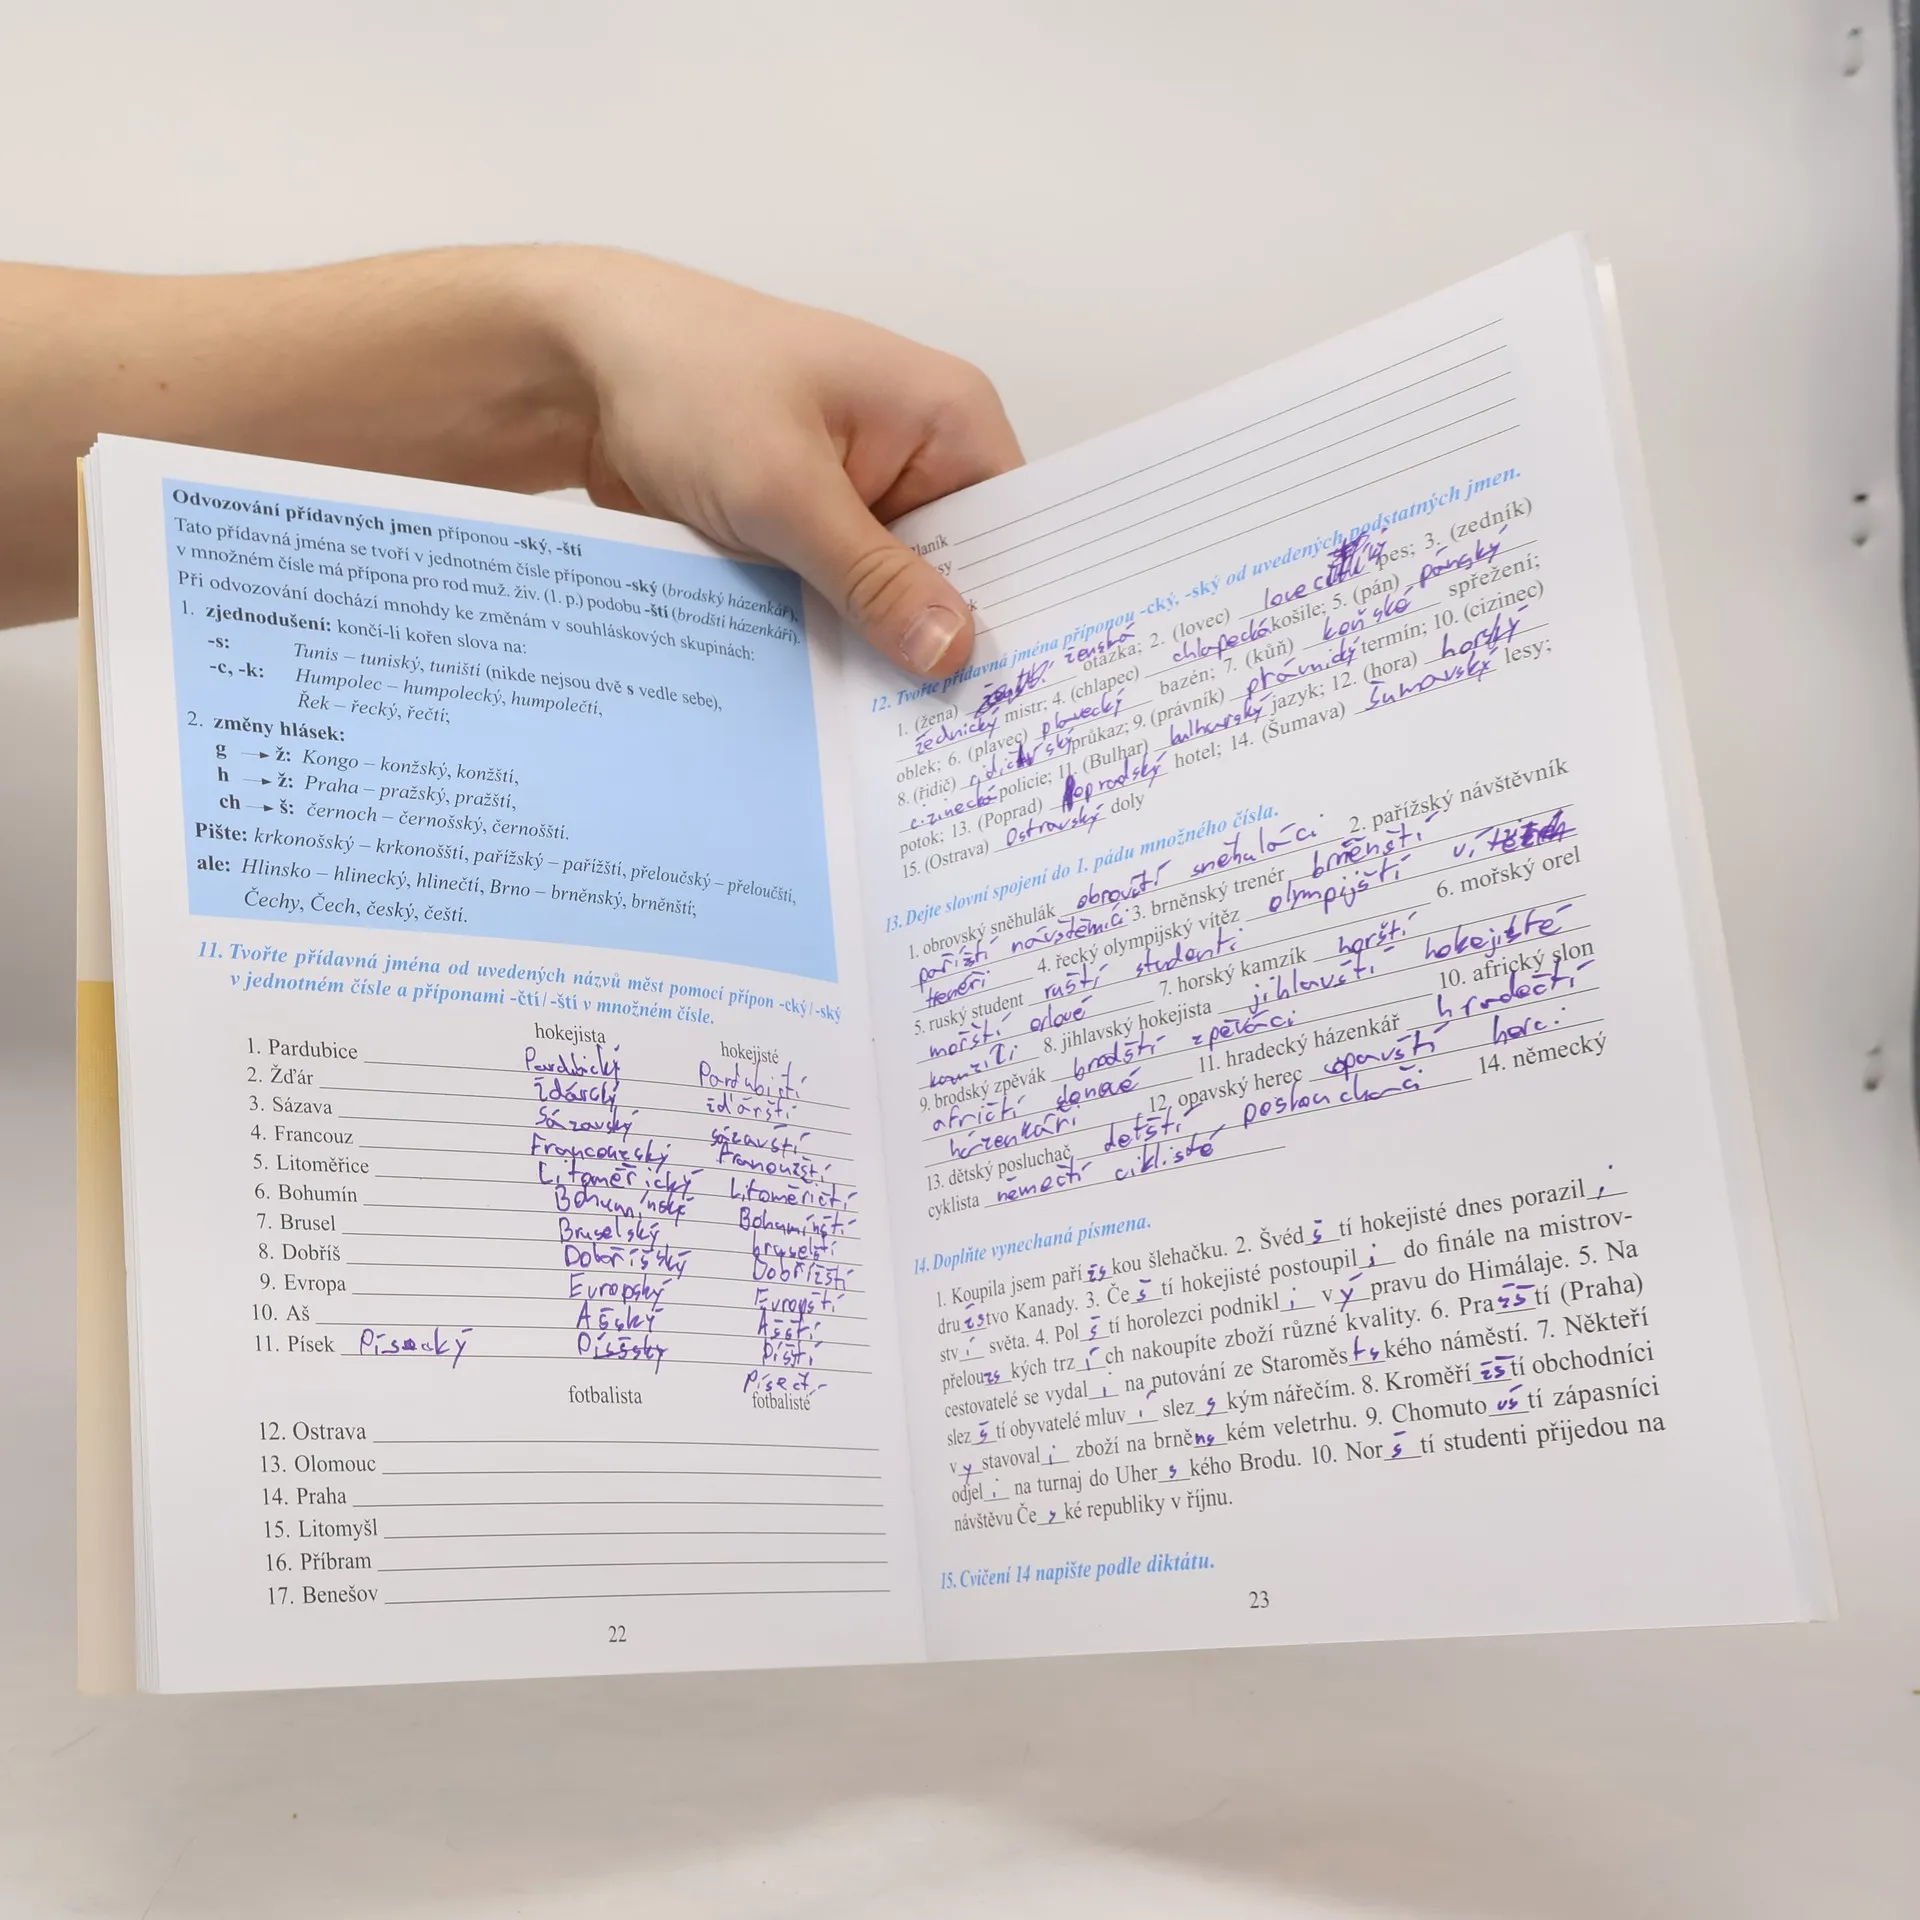 Odvozování přídavných jmen příponou -ský, -ští
Tato přídavná jména se tvoří v jednotném čísle příponou -ský (brodský házenkář),
v množném čísle má přípona pro rod muž. živ. (1. p.) podobu -ští (brodští házenkáři).
Při odvozování dochází mnohdy ke změnám v souhláskových skupinách:
1. zjednodušení: končí-li kořen slova na:
-s: Tunis – tuniský, tuniští (nikde nejsou dvě s vedle sebe),
-c, -k: Humpolec – humpolecký, humpolečtí,
Řek – řecký, řečtí;
2. změny hlásek:
g → ž: Kongo – konžský, konžští,
h → ž: Praha – pražský, pražští,
ch → š: černoch – černošský, černošští.
Pište: krkonošský – krkonošští, pařížský – pařížští, přeloučský – přeloučští,
ale: Hlinsko – hlinecký, hlinečtí, Brno – brněnský, brněnští;
Čechy, Čech, český, čeští.
11. Tvořte přídavná jména od uvedených názvů měst pomocí přípon -cký/-ský
v jednotném čísle a příponami -čtí/-ští v množném čísle.
hokejista hokejisté
1. Pardubice Pardubický
2. Žďár žďárští
3. Sázava Sázavský sázavští
4. Francouz Francouzský
5. Litoměřice Litoměřický Litoměřičtí
6. Bohumín Bohumínští
7. Brusel Bruselský bruselští
8. Dobříš Dobříšský Dobřížští
9. Evropa Evropský Evropští
10. Aš Ašský Ašští
11. Písek Písecký Píšští
fotbalista fotbalisté
12. Ostrava
13. Olomouc
14. Praha
15. Litomyšl
16. Příbram
17. Benešov
22
12. Tvořte přídavná jména příponou -cký, -ský od uvedených podstatných jmen.
1. (žena) ženská otázka; 2. (lovec) pes; 3. (zedník)
zednický mistr; 4. (chlapec) chlapecká košile; 5. (pán) pánský
oblek; 6. (plavec) plavecký bazén; 7. (kůň) koňské spřežení;
8. (řidič) průkaz; 9. (právník) termín; 10. (cizinec)
cizinecká policie; 11. (Bulhar) bulharský jazyk; 12. (hora) horský
potok; 13. (Poprad) Popradský hotel; 14. (Šumava) šumavský lesy;
15. (Ostrava) Ostravský doly
13. Dejte slovní spojení do 1. pádu množného čísla.
1. obrovský sněhulák obrovští sněhuláci 2. pařížský návštěvník
3. brněnský trenér brněnští
trenéři 4. řecký olympijský vítěz olympijští
5. ruský student ruští studenti 6. mořský orel
mořští orlové 7. horský kamzík horští
kamzíci 8. jihlavský hokejista jihlavští hokejisté
9. brodský zpěvák brodští zpěváci 10. africký slon
afričtí 11. hradecký házenkář hradečtí
házenkáři 12. opavský herec opavští
13. dětský posluchač dětští 14. německý
cyklista němečtí ciklisté
14. Doplňte vynechaná písmena.
1. Koupila jsem paří žs kou šlehačku. 2. Švéd š tí hokejisté dnes porazil i
dru žs tvo Kanady. 3. Če š tí hokejisté postoupil i do finále na mistrov-
stv í světa. 4. Pol š tí horolezci podnikl i v ý pravu do Himálaje. 5. Na
přelou zs kých trz í ch nakoupíte zboží různé kvality. 6. Pra žš tí (Praha)
cestovatelé se vydal i na putování ze Staroměs ts kého náměstí. 7. Někteří
slez š tí obyvatelé mluv í slez s kým nářečím. 8. Kroměří žš tí obchodníci
v y stavoval i zboží na brně ns kém veletrhu. 9. Chomuto vš tí zápasníci
odjel i na turnaj do Uher s kého Brodu. 10. Nor š tí studenti přijedou na
návštěvu Če s ké republiky v říjnu.
15. Cvičení 14 napište podle diktátu.
23